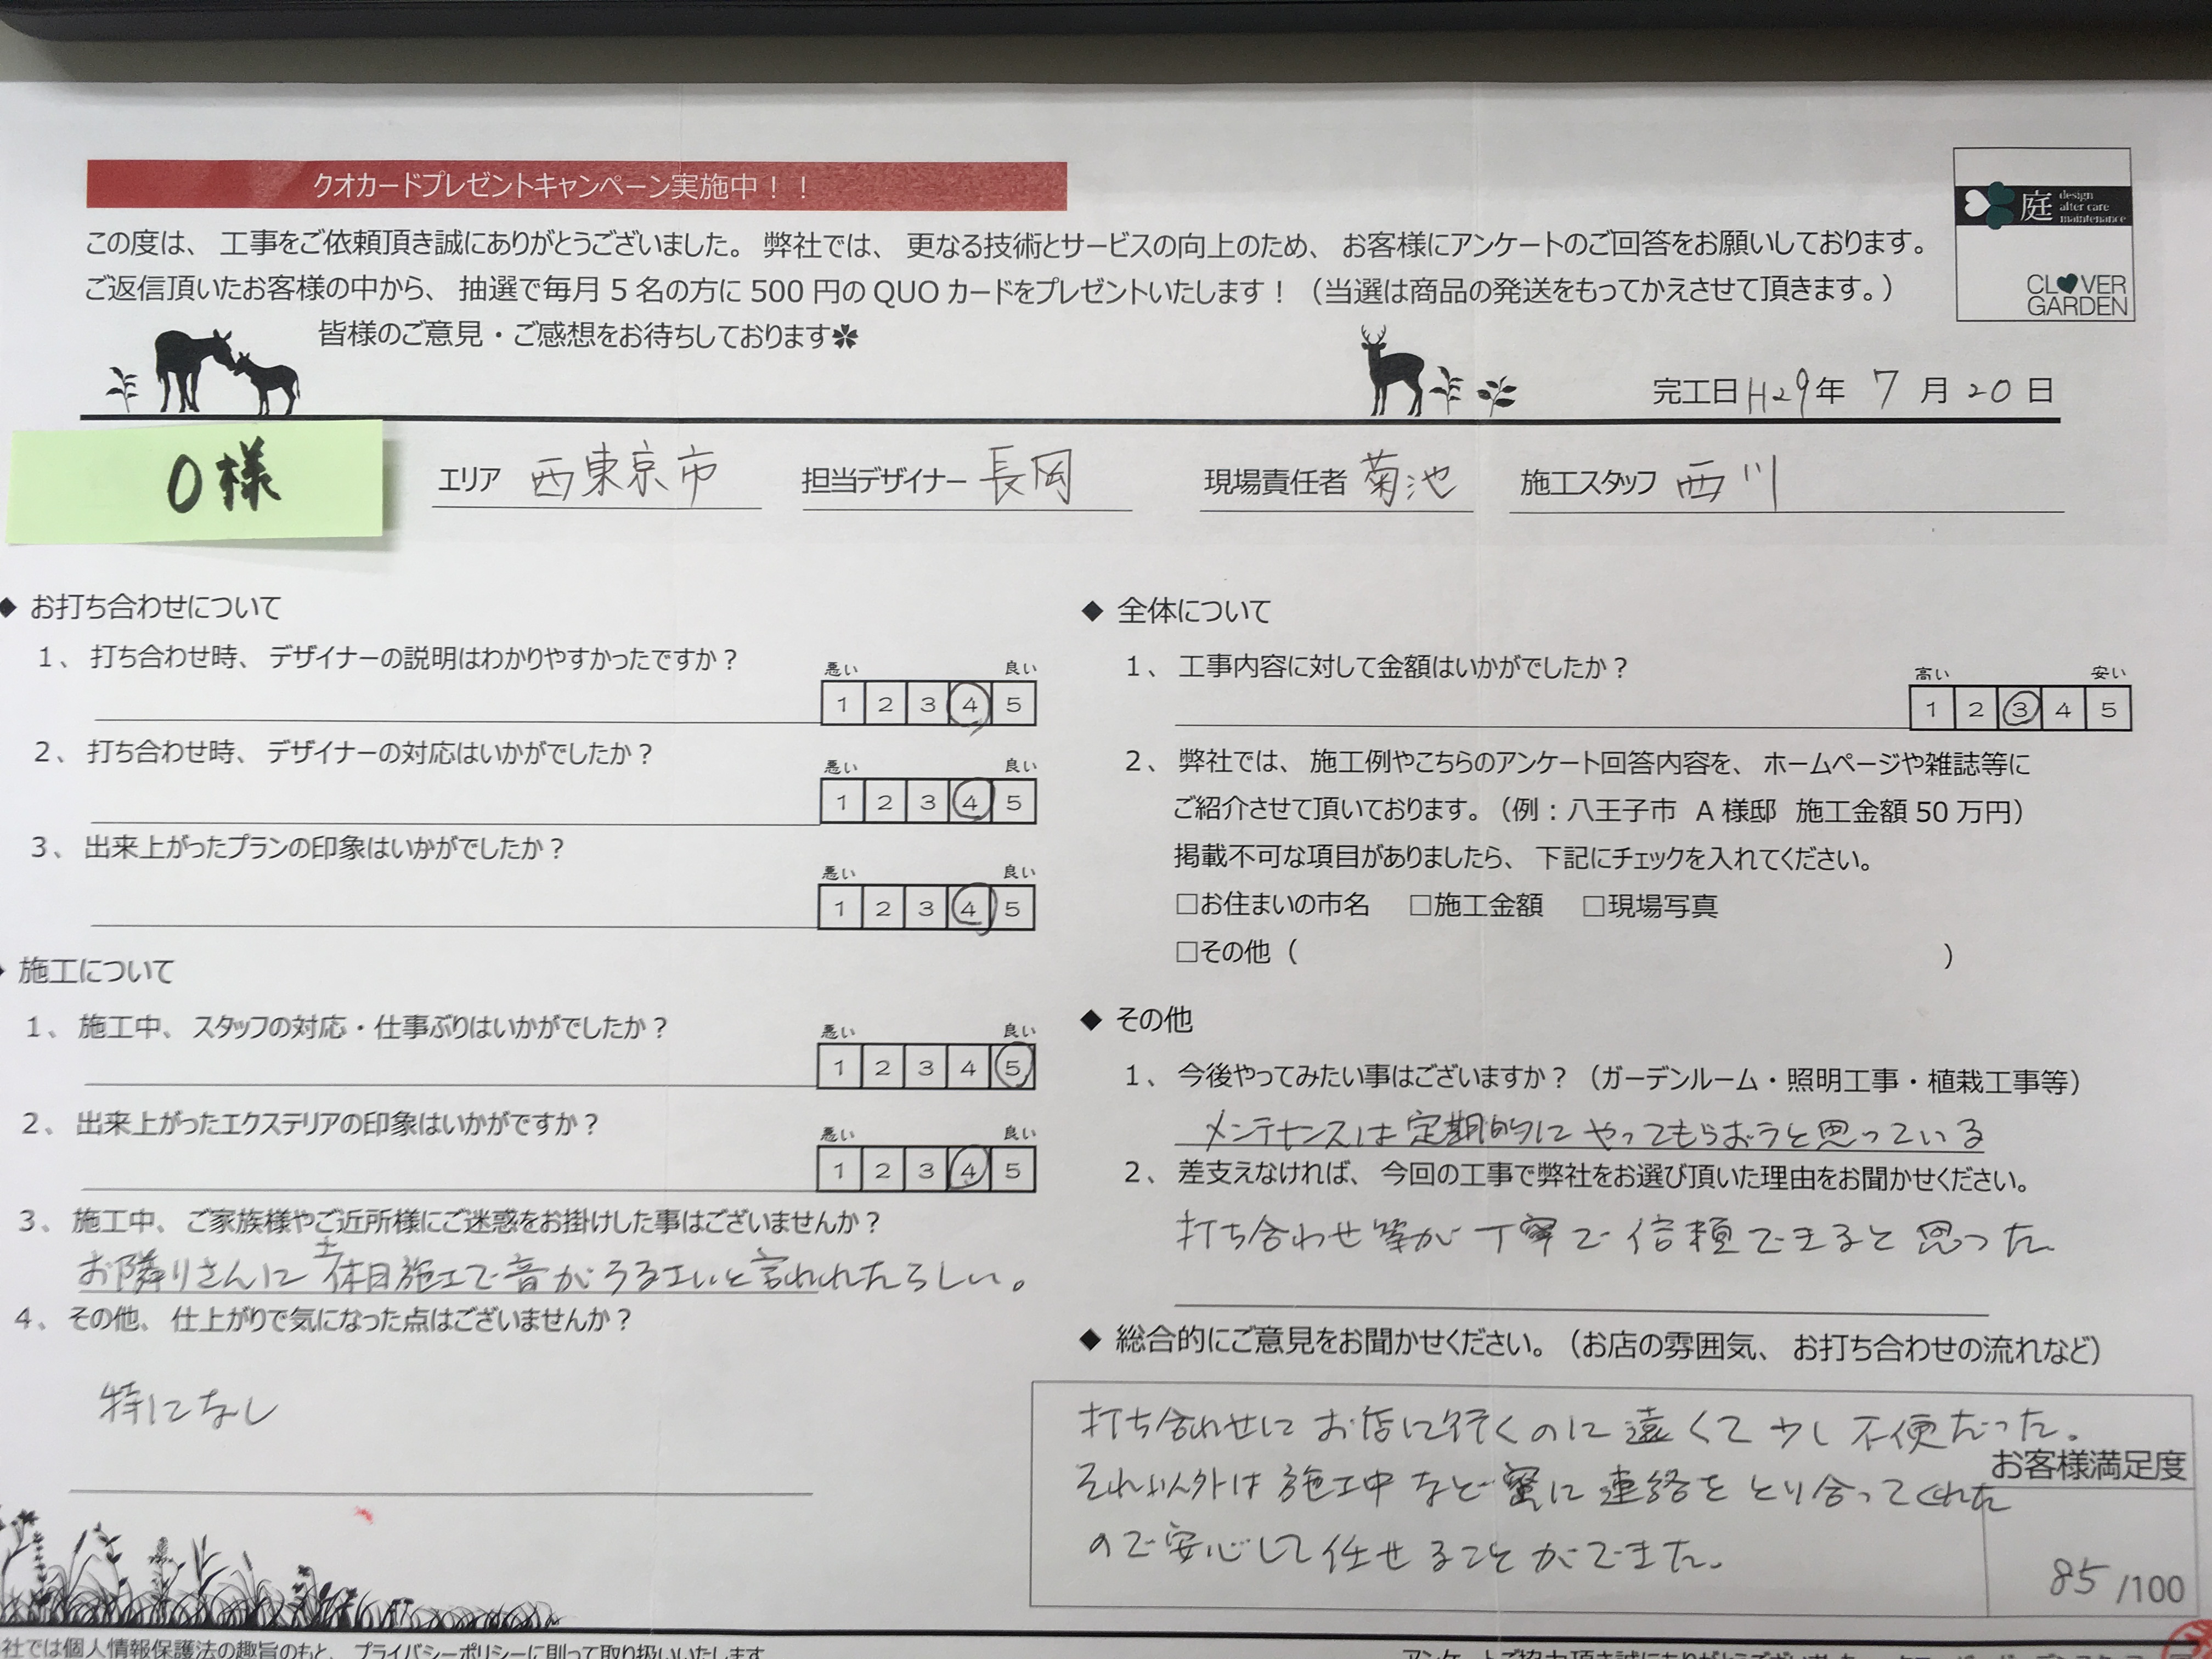 クオカードプレゼントキャンペーン実施中！！
庭 design after care maintenance
CLOVER GARDEN
この度は、工事をご依頼頂き誠にありがとうございました。弊社では、更なる技術とサービスの向上のため、お客様にアンケートのご回答をお願いしております。
ご返信頂いたお客様の中から、抽選で毎月5名の方に500円のQUOカードをプレゼントいたします！（当選は商品の発送をもってかえさせて頂きます。）
皆様のご意見・ご感想をお待ちしております✽
完工日 H29年 7月 20日
O様 エリア 西東京市 担当デザイナー 長岡 現場責任者 菊池 施工スタッフ 西川
◆ お打ち合わせについて
1、打ち合わせ時、デザイナーの説明はわかりやすかったですか？
悪い 良い
1 2 3 4 5
2、打ち合わせ時、デザイナーの対応はいかがでしたか？
悪い 良い
1 2 3 4 5
3、出来上がったプランの印象はいかがでしたか？
悪い 良い
1 2 3 4 5
◆ 施工について
1、施工中、スタッフの対応・仕事ぶりはいかがでしたか？
悪い 良い
1 2 3 4 5
2、出来上がったエクステリアの印象はいかがですか？
悪い 良い
1 2 3 4 5
3、施工中、ご家族様やご近所様にご迷惑をお掛けした事はございませんか？
お隣りさんに土休日施工で音がうるさいと言われたらしい。
4、その他、仕上がりで気になった点はございませんか？
特になし
◆ 全体について
1、工事内容に対して金額はいかがでしたか？
高い 安い
1 2 3 4 5
2、弊社では、施工例やこちらのアンケート回答内容を、ホームページや雑誌等に
ご紹介させて頂いております。（例：八王子市 A様邸 施工金額50万円）
掲載不可な項目がありましたら、下記にチェックを入れてください。
□お住まいの市名 □施工金額 □現場写真
□その他（ ）
◆ その他
1、今後やってみたい事はございますか？（ガーデンルーム・照明工事・植栽工事等）
メンテナンスは定期的にやってもらおうと思っている
2、差支えなければ、今回の工事で弊社をお選び頂いた理由をお聞かせください。
打ち合わせ等が丁寧で信頼できると思った
◆ 総合的にご意見をお聞かせください。（お店の雰囲気、お打ち合わせの流れなど）
打ち合わせにお店に行くのに遠くて少し不便だった。
それ以外は施工中など密に連絡をとり合ってくれた
ので安心して任せることができた。
お客様満足度
85/100
社では個人情報保護法の趣旨のもと、プライバシーポリシーに則って取り扱いいたします